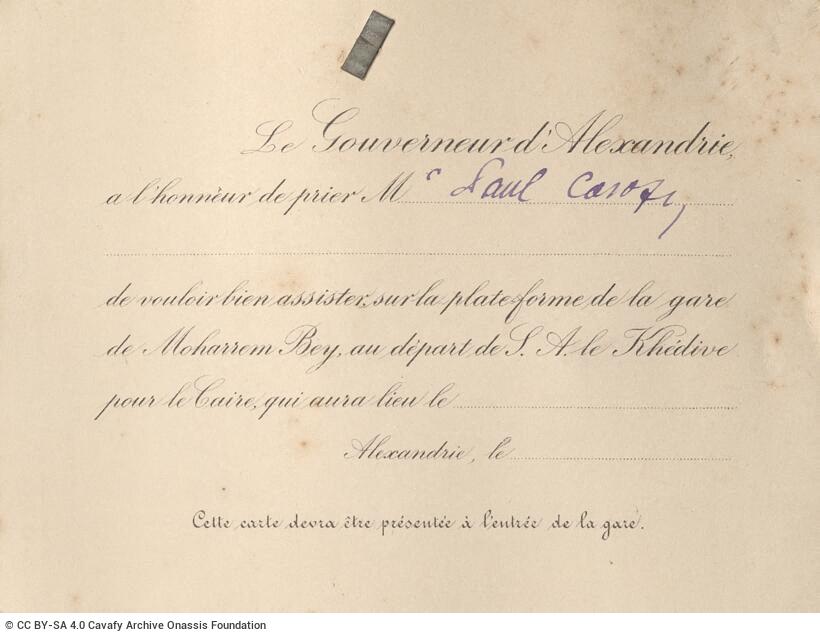 Le Gouverneur d'Alexandrie,
a l'honneur de prier Mr Paul Cavafy
de vouloir bien assister, sur la plate-forme de la gare
de Moharrem Bey, au départ de S. A. le Khédive
pour le Caire, qui aura lieu le
Alexandrie, le
Cette carte devra être présentée à l'entrée de la gare.
© CC BY-SA 4.0 Cavafy Archive Onassis Foundation